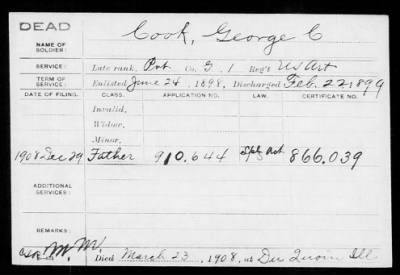 DEAD
NAME OF SOLDIER: Cook, George C
SERVICE: Late rank, Pvt Co. G. 1 Reg't US Art
TERM OF SERVICE: Enlisted June 24, 1898, Discharged Feb. 22 1899
DATE OF FILING. CLASS. APPLICATION NO. LAW. CERTIFICATE NO.
Invalid,
Widow,
Minor,
1908 Dec 29 Father 910.644 Act 866.039
ADDITIONAL SERVICES:
REMARKS:
M. M.
Died March 23, 1908, at Du Quoin Ill